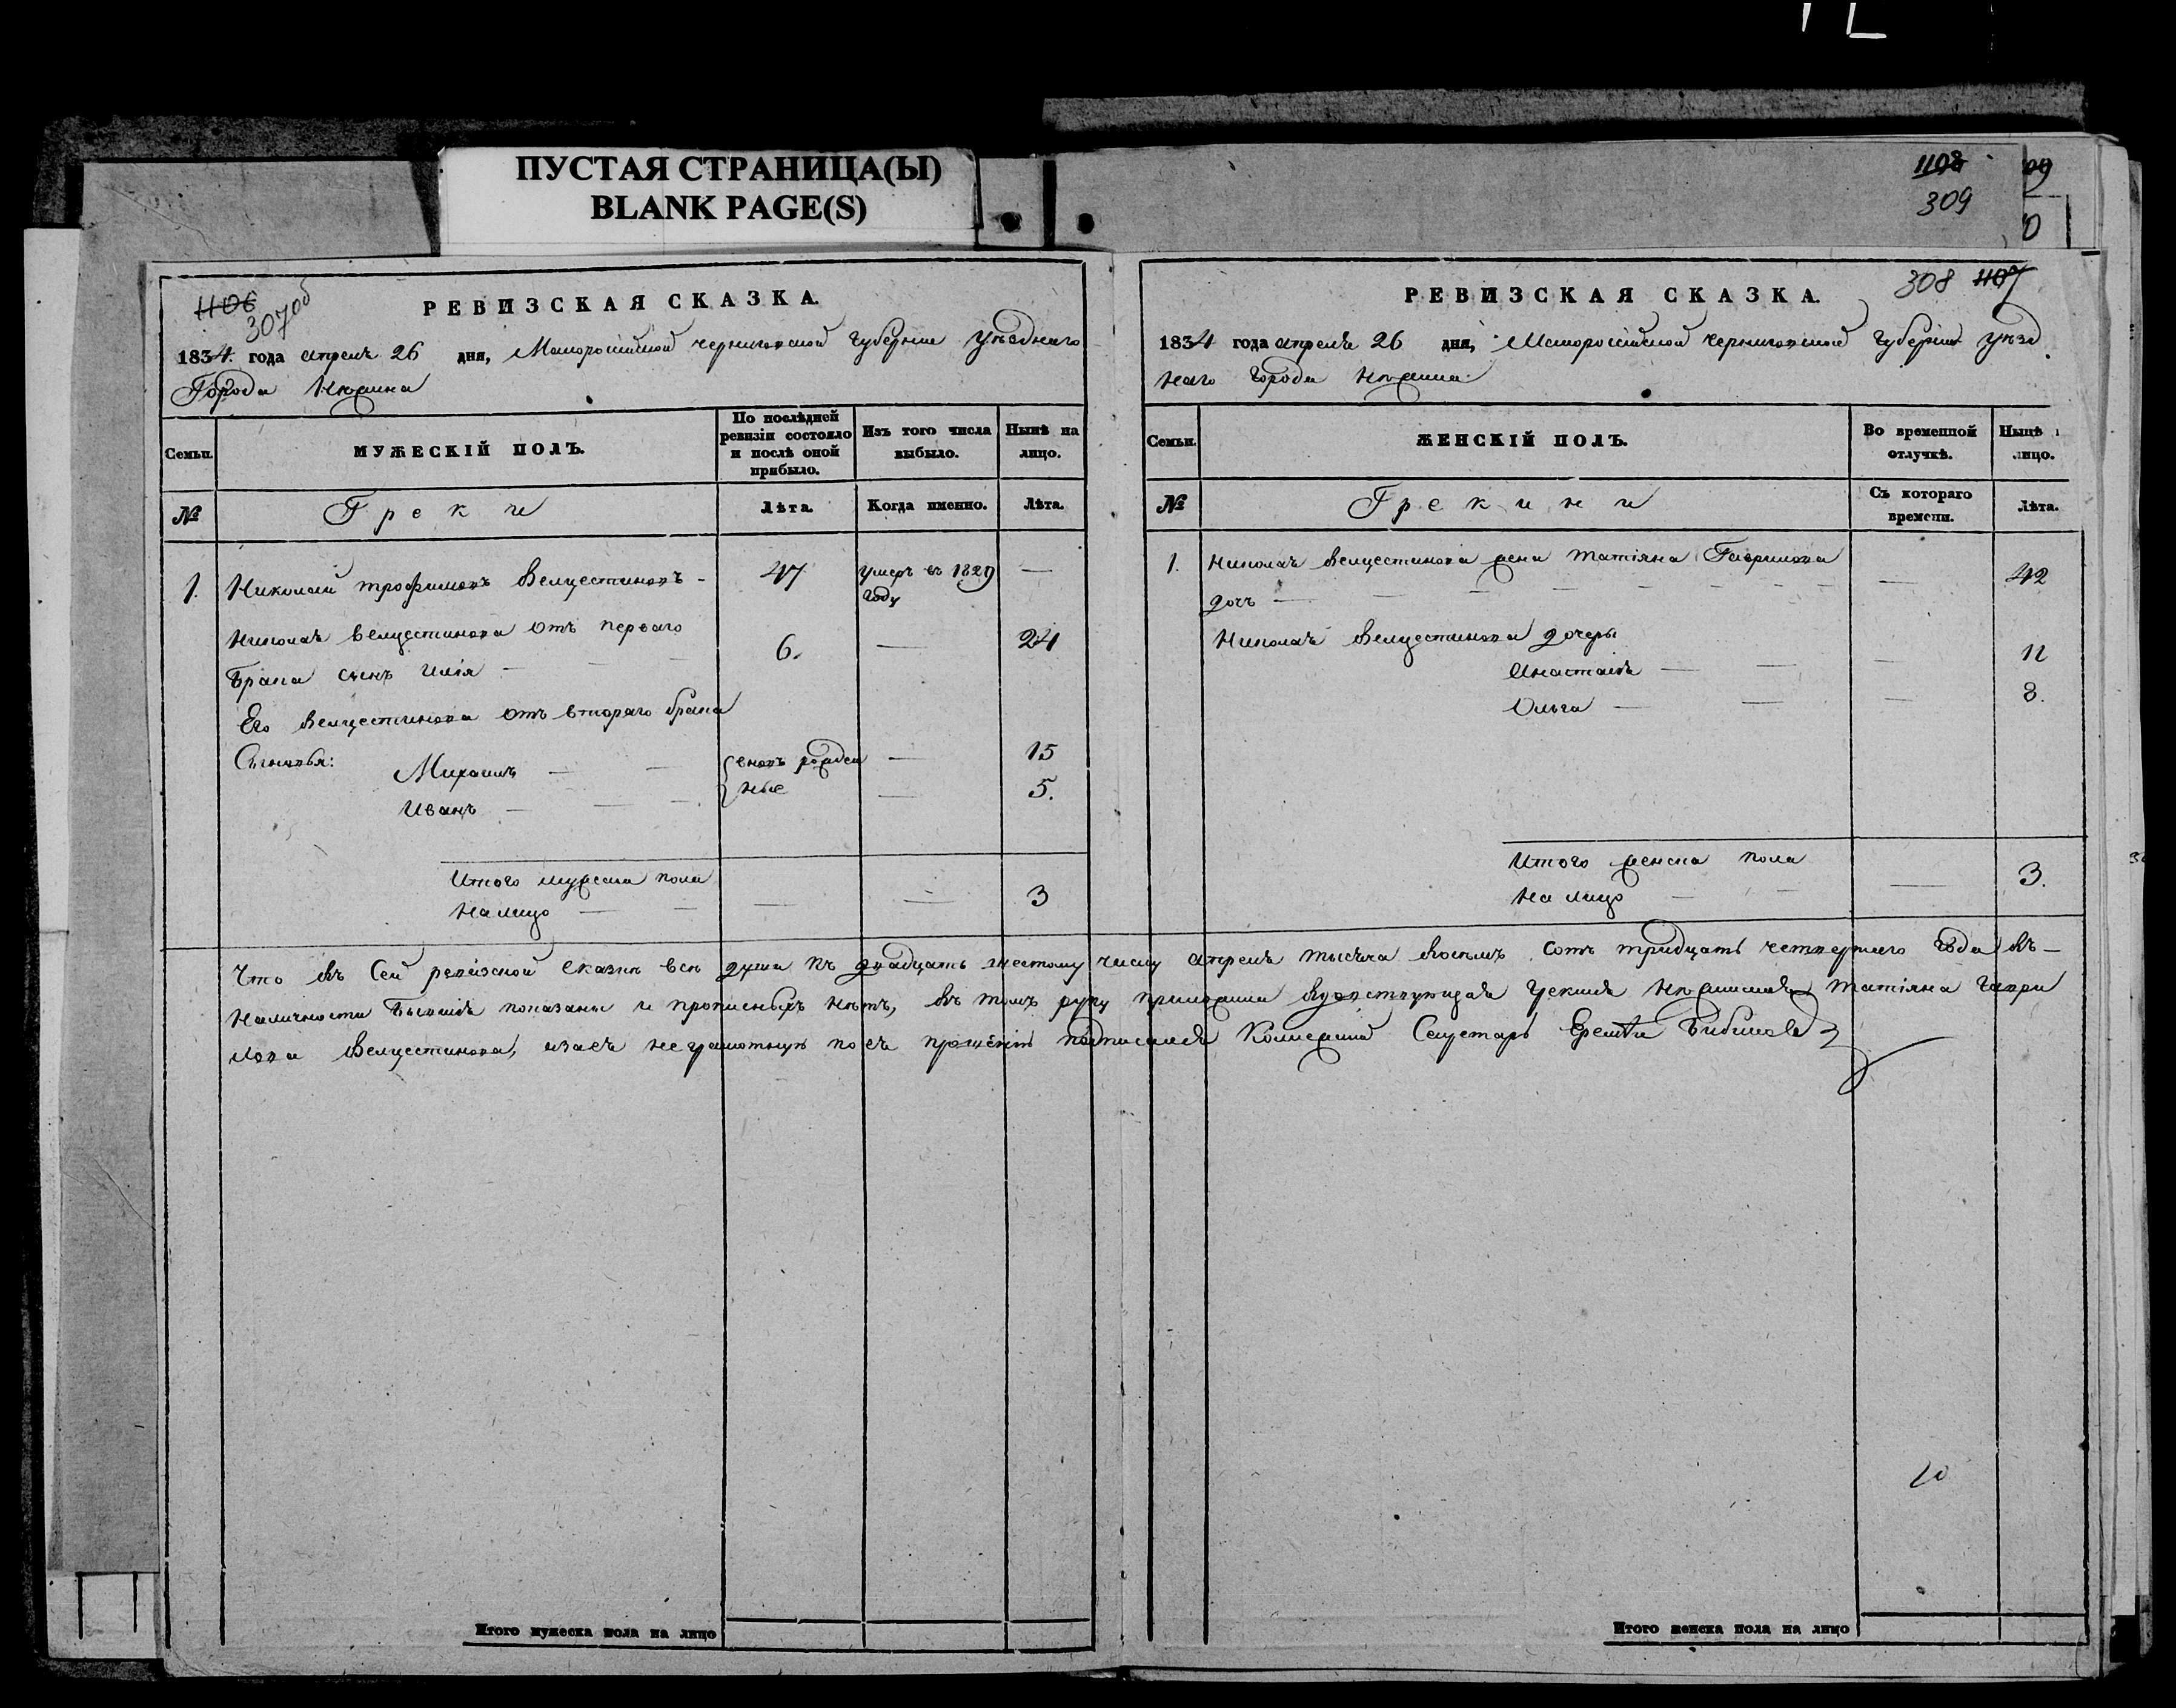 ПУСТАЯ СТРАНИЦА(Ы)
BLANK PAGE(S)
1108
309
09
1106
307об
РЕВИЗСКАЯ СКАЗКА.
1834 года апреля 26 дня, Малоросiйской черниговской губернiи уѣзднаго
Города Нѣжина
Семьи.
МУЖЕСКІЙ ПОЛЪ.
По послѣдней ревизіи состояло и послѣ оной прибыло.
Изъ того числа выбыло.
Нынѣ на лицо.
№
Греки
Лѣта.
Когда именно.
Лѣта.
1. Николай трофимовъ Велцестиновъ - 47 умеръ въ 1829 —
году
Николая Велцестинова отъ перваго
брака сынъ Илiя — 6. — 24
Его Велцестинова отъ втораго брака
Сыновья: Михаилъ — вновь рожден — 15
Иванъ — ные — 5.
Итого мужеска пола
на лицо — 3
308 1107
РЕВИЗСКАЯ СКАЗКА.
1834 года апреля 26 дня, Малоросiйской черниговской губернiи уѣзд
наго города Нѣжина
Семьи.
ЖЕНСКІЙ ПОЛЪ.
Во временной отлучкѣ.
Нынѣ лицо.
№
Грекини
Съ котораго времени.
Лѣта.
1. Николая Велцестинова жена Татiяна Гаврилова
дочь — 42
Николая Велцестинова дочери
Анастасiя — 11
Ольга — 8.
Итого женска пола
на лицо — 3.
Что въ Сей ревизской сказкѣ всѣ души къ двадцать шестому числу апреля тысяча восемь сотъ тридцать четвертаго года въ —
наличности бывшiя показаны и прописныхъ нѣтъ, въ томъ руку приложила Татiяна Гаври
лова Велцестинова, а за ея неграмотную по ея прошенiю подписался Колежскiй Секретарь
10
Итого мужеска пола на лицо
Итого женска пола на лицо